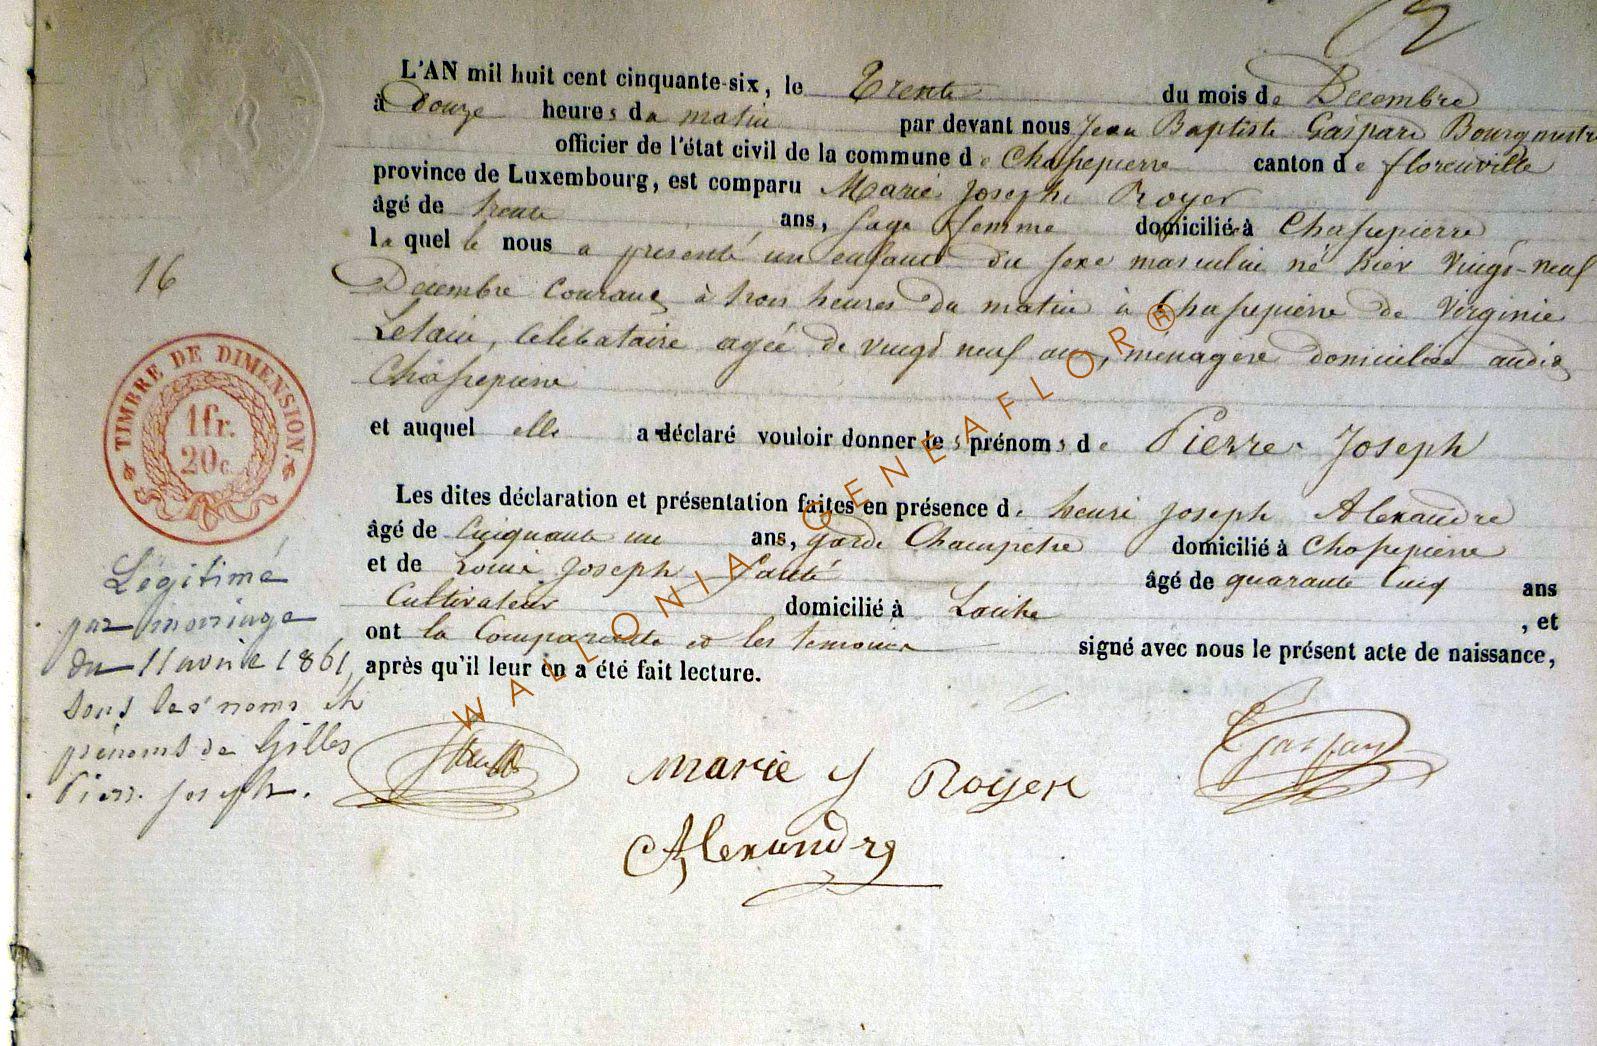 L'AN mil huit cent cinquante-six, le Trente du mois de Décembre
à Douze heures du matin par devant nous Jean Baptiste Gaspard Bourgmestre
officier de l'état civil de la commune de Chassepierre canton de florenville
province de Luxembourg, est comparu Marie Joseph Royer
âgé de trente ans, sage femme domicilié à Chassepierre
laquelle nous a présenté un enfant du sexe masculin né hier vingt-neuf
Décembre courant à trois heures du matin à Chassepierre de Virginie
Letaie, celibataire agée de vingt neuf ans, ménagère domiciliée audit
Chassepierre
et auquel elle a déclaré vouloir donner les prénoms de Pierre Joseph
Les dites déclaration et présentation faites en présence de henri Joseph Alexandre
âgé de Cinquante un ans, garde Champetre domicilié à Chassepierre
et de Louis Joseph âgé de quarante Cinq ans
Cultivateur domicilié à Laiche , et
ont la Comparante et les temoins signé avec nous le présent acte de naissance,
après qu'il leur en a été fait lecture.
16
TIMBRE DE DIMENSION.
1 fr.
20 c.
Légitimé
par mariage
du 11 avril 1861,
sous les noms et
prénoms de Gilles
Pierre Joseph.
Marie J Royer
Gaspard
Alexandre
WALLONIA GENEAFLOR®